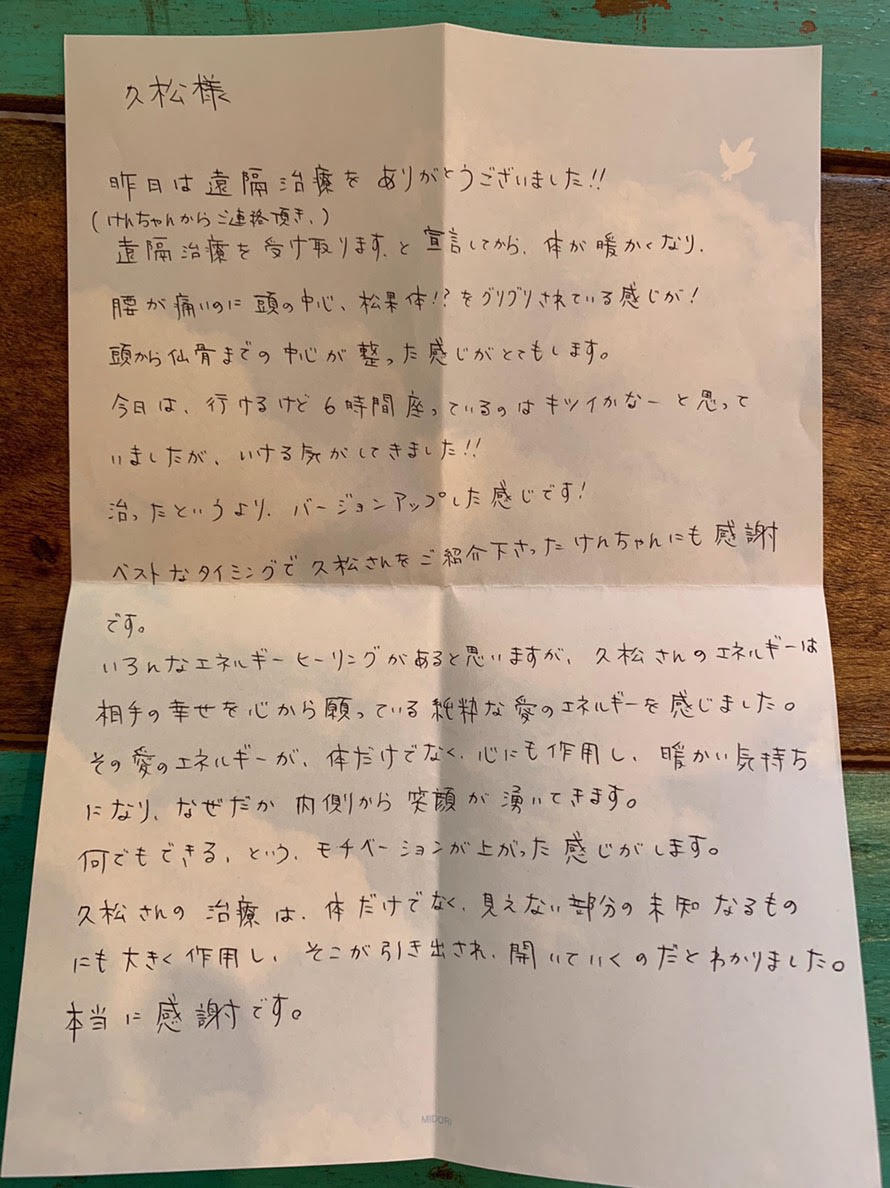 久松様
昨日は遠隔治療をありがとうございました!!
(けんちゃんからご連絡頂き、)
遠隔治療を受け取ります、と宣言してから、体が暖かくなり、
腰が痛いのに頭の中心、松果体!?をグリグリされている感じが!
頭から仙骨までの中心が整った感じがとてもします。
今日は、行けるけど6時間座っているのはキツイかなーと思って
いましたが、いける気がしてきました!!
治ったというより、バージョンアップした感じです!
ベストなタイミングで久松さんをご紹介下さったけんちゃんにも感謝
です。
いろんなエネルギーヒーリングがあると思いますが、久松さんのエネルギーは
相手の幸せを心から願っている純粋な愛のエネルギーを感じました。
その愛のエネルギーが、体だけでなく、心にも作用し、暖かい気持ち
になり、なぜだか内側から笑顔が湧いてきます。
何でもできる、という、モチベーションが上がった感じがします。
久松さんの治療は、体だけでなく、見えない部分の未知なるもの
にも大きく作用し、そこが引き出され、開いていくのだとわかりました。
本当に感謝です。
MIDORI